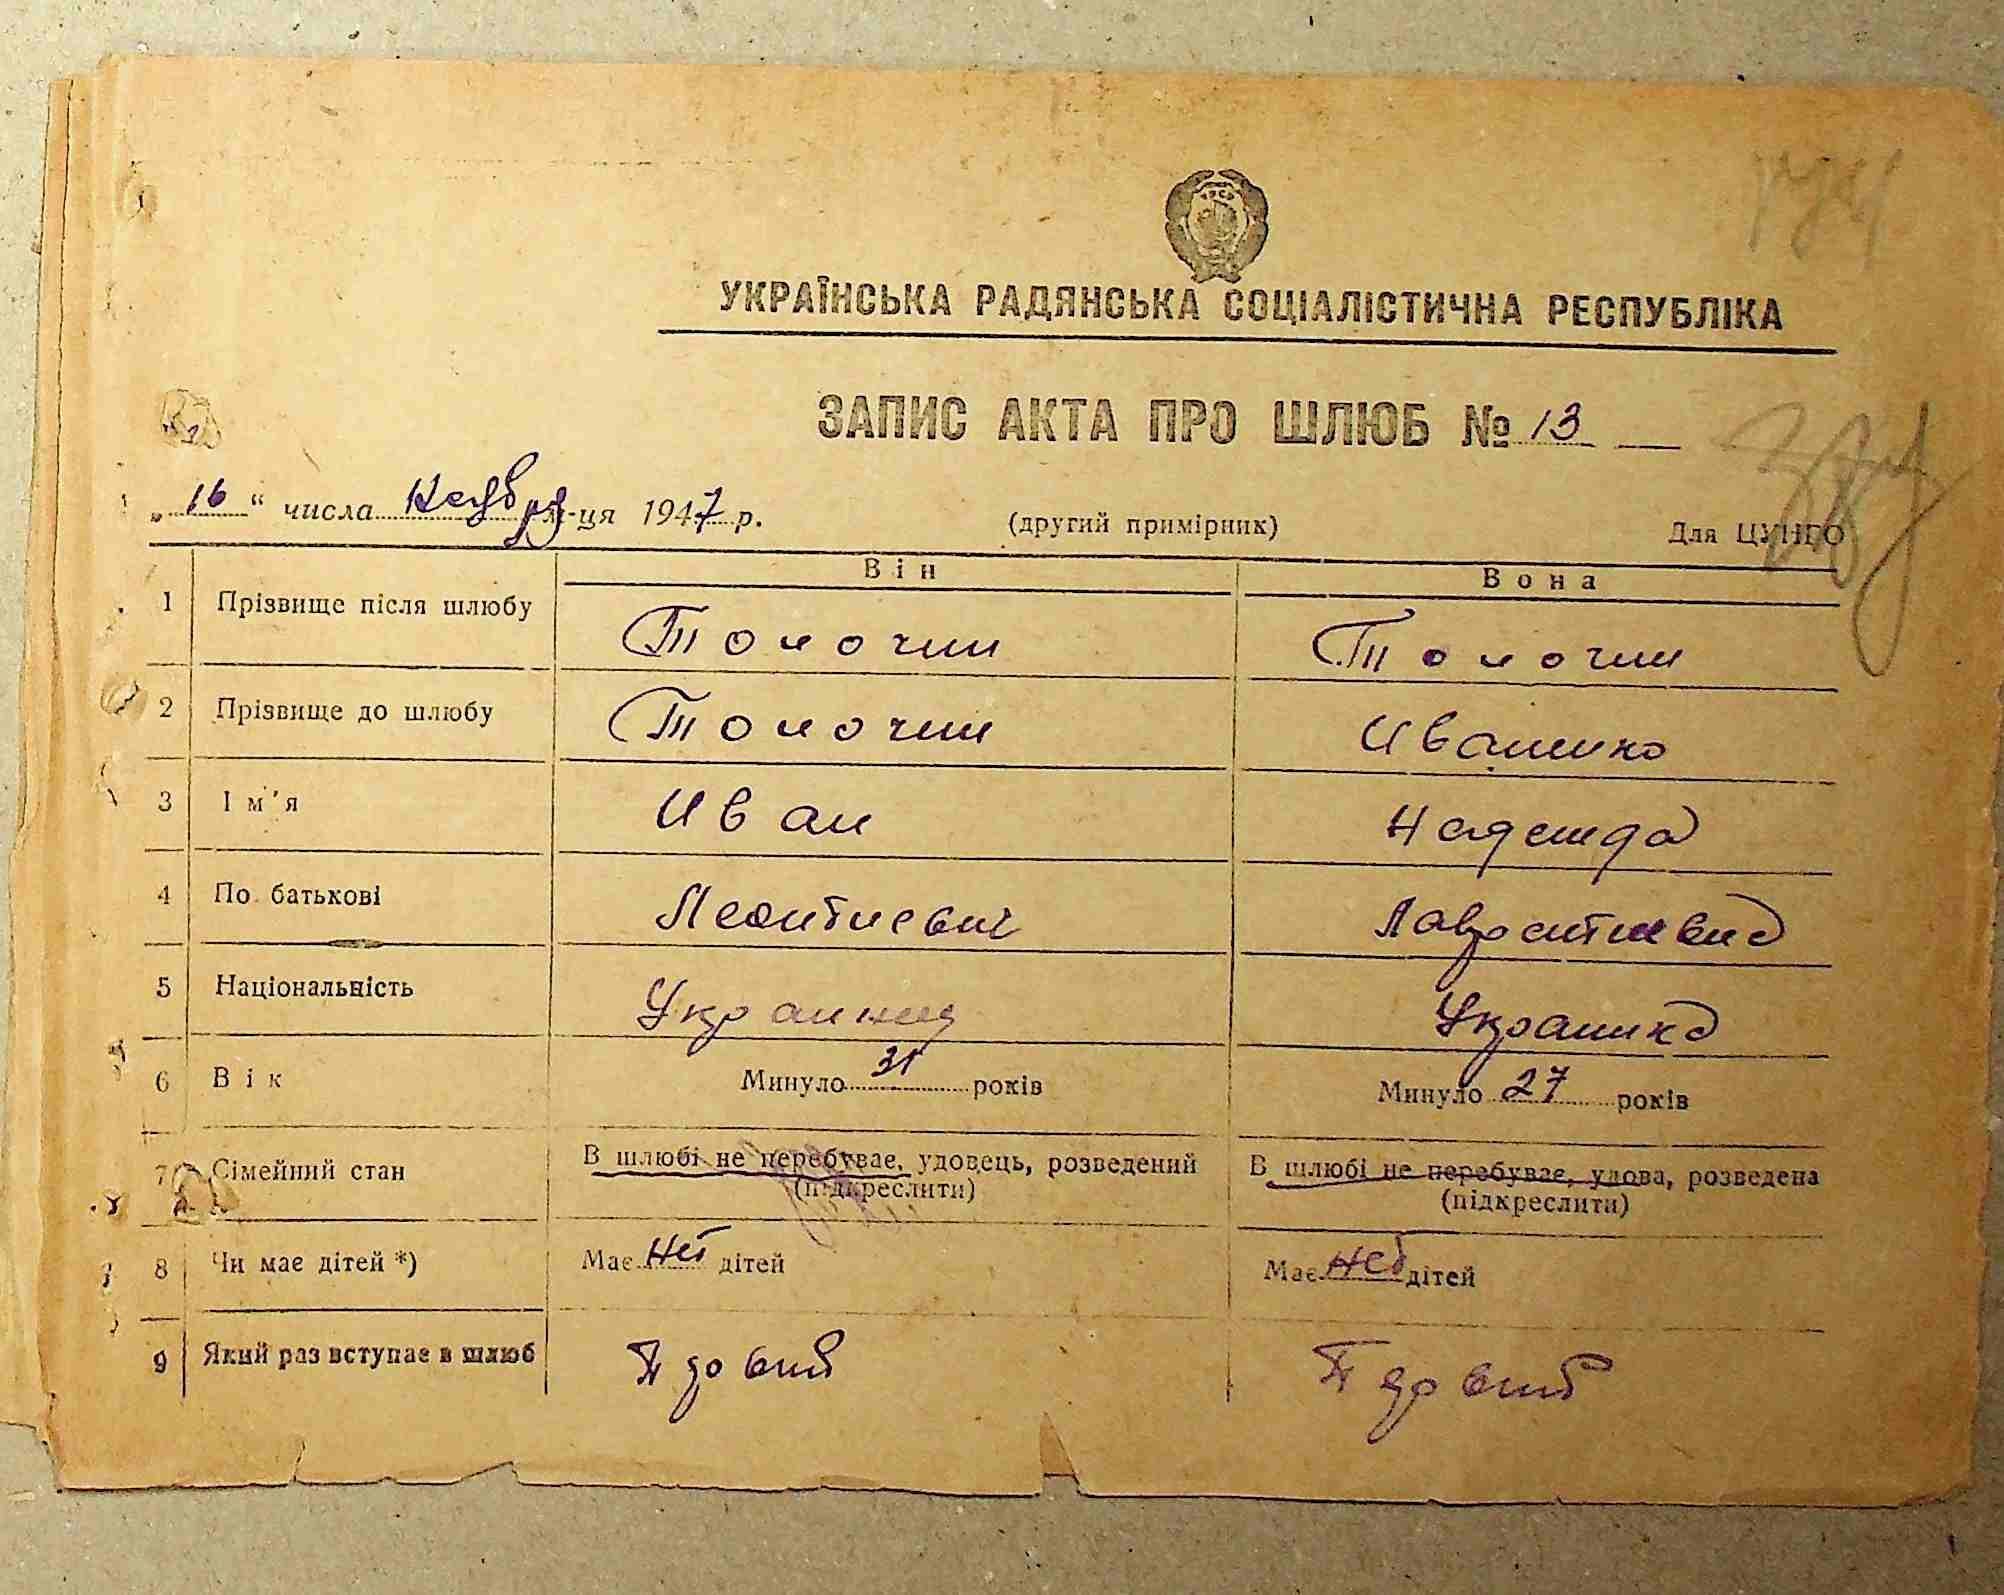 УРСР
УКРАЇНСЬКА РАДЯНСЬКА СОЦІАЛІСТИЧНА РЕСПУБЛІКА
ЗАПИС АКТА ПРО ШЛЮБ № 13
„ 16 “ числа Ноября м-ця 1947 р. (другий примірник) Для ЦУНГО
Він Вона
1 Прізвище після шлюбу Толочин Толочин
2 Прізвище до шлюбу Толочин Ивашко
3 Ім'я Иван Надежда
4 По батькові Леонтиевич
5 Національність Украинец Украинка
6 Вік Минуло 31 років Минуло 27 років
7 Сімейний стан В шлюбі не перебуває, удовець, розведений (підкреслити) В шлюбі не перебуває, удова, розведена (підкреслити)
8 Чи має дітей *) Має нет дітей Має нет дітей
9 Який раз вступає в шлюб Первый Первый